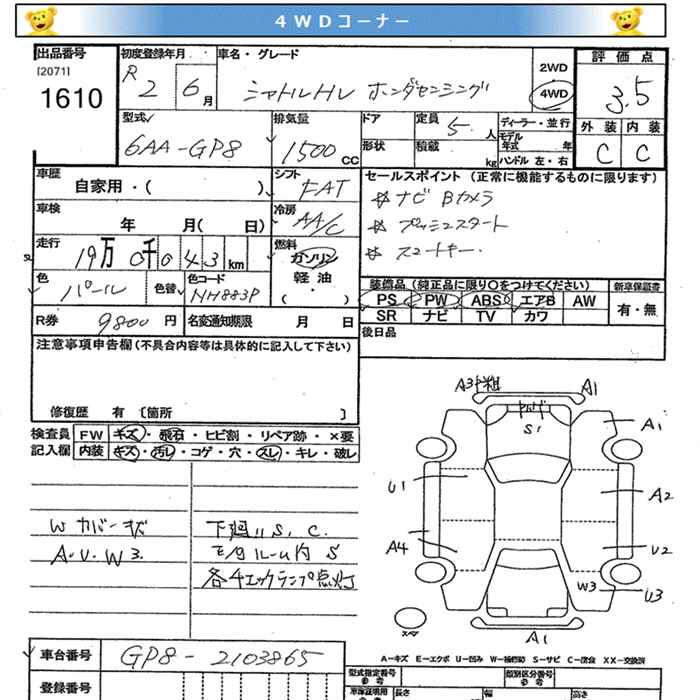 ４ＷＤコーナー
出品番号
[2071]
1610
初度登録年月
R 2 6月
車名・グレード
シャトルHV ホンダセンシング
2WD
4WD
評価点
3.5
外装 内装
C C
型式
6AA-GP8
排気量
1500 CC
ドア
定員 5. 人
形状
積載 kg
ディーラー・並行
モデル年式 年
ハンドル 左・右
車歴
自家用・( )
シフト
FAT
車検
年 月( 日)
冷房
AA/C
走行
19万0千043km
燃料
ガソリン
軽油
・( )
色
パール
色替
色コード
NH883P
R券 9800 円
名変通知期限 月 日
セールスポイント (正常に機能するものに限ります)
ナビ Bカメラ
プッシュスタート
スマートキー.
装備品 (純正品に限り○をつけてください)
PS PW ABS エアB AW
SR ナビ TV カワ
新車保証書
有・無
後日品
注意事項申告欄(不具合内容等は具体的に記入して下さい)
修復歴 有 [箇所 ]
検査員
記入欄
FW キズ・飛石・ヒビ割・リペア跡・×要
内装 キズ・汚レ・コゲ・穴・スレ・キレ・破レ
W カバーキズ
A・U・W3.
下廻りS, C.
各4エックランプ点灯
A3
A1
S1
A1
U1
A2
A4
U2
W3
U3
スペア
A1
A－キズ E－エクボ U－凹み W－補修跡 S－サビ C－腐食 XX－交換済
車台番号 GP8-2103865
登録番号
型式指定番号
参考
類別区分番号
参考
車検証明用
参考
長さ
幅
高さ